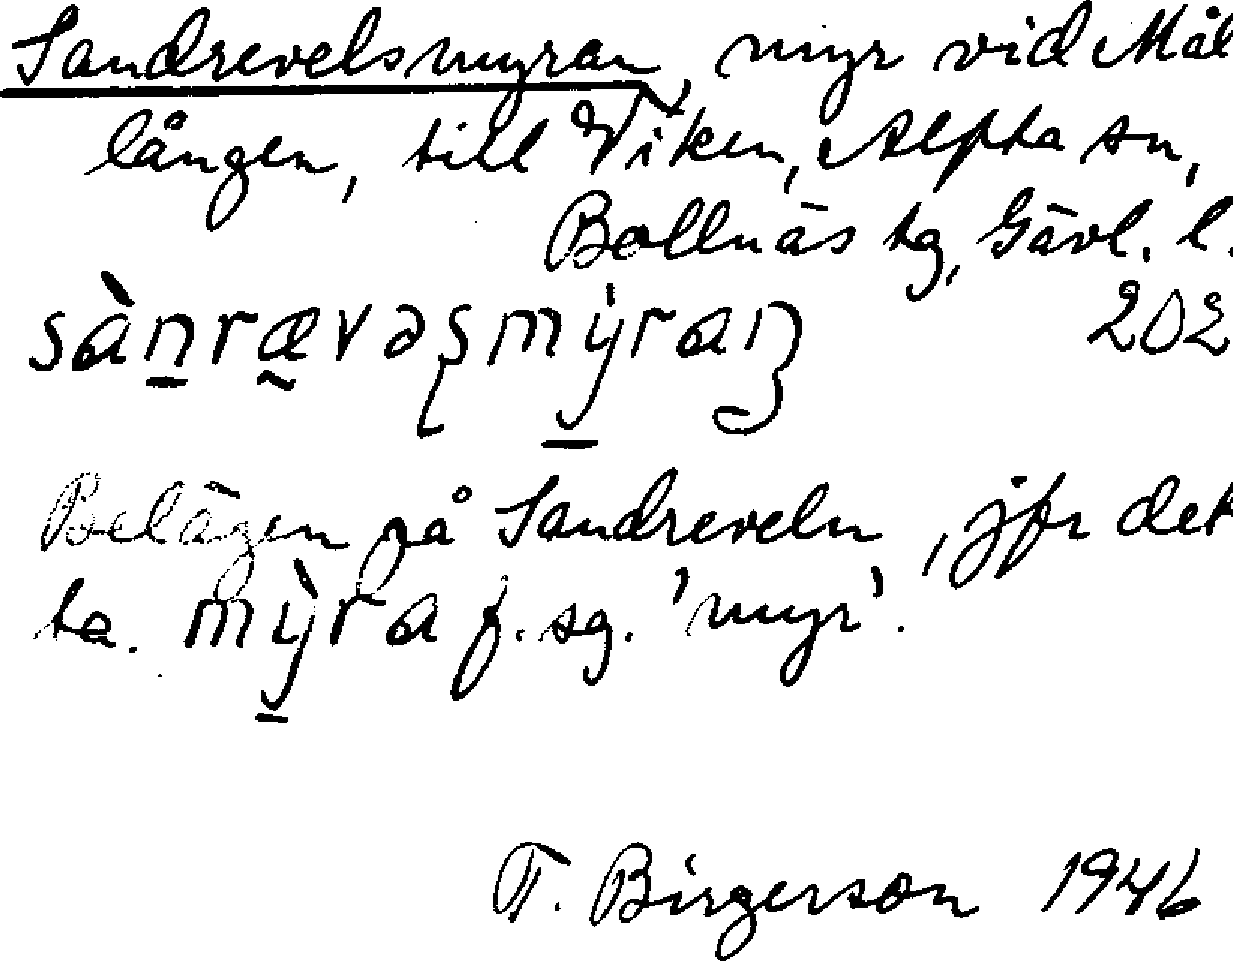 Sandrevelsmyran, myr vid Mål
lången, till Viken, Alfta sn,
Bollnäs tg, Gävl. l.
sànrævəʂmýraŋ 202
Belägen på Sandreveln, jfr det
ta. mỳra f. sg. 'myr'.
T. Birgerson 1946